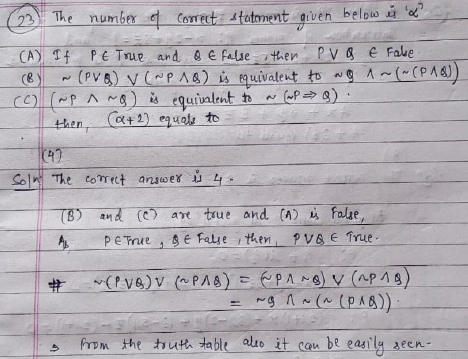 (23) The number of correct statement given below is 'α'
(A) If P ∈ True and Q ∈ False, then P V Q ∈ False
(B) ~ (PVQ) V (~P ∧ Q) is equivalent to ~Q ∧ ~(~(P∧Q))
(C) (~P ∧ ~Q) is equivalent to ~ (~P ⇒ Q).
then, (α+2) equals to
(4)
Soln The correct answer is 4.
(B) and (C) are true and (A) is False,
As P ∈ True, Q ∈ False, then, PVQ ∈ True.
# ~(PVQ) V (~P∧Q) = (~P∧~Q) V (~P∧Q)
= ~Q ∧ ~(~(P∧Q)).
→ From the truth table also it can be easily seen-